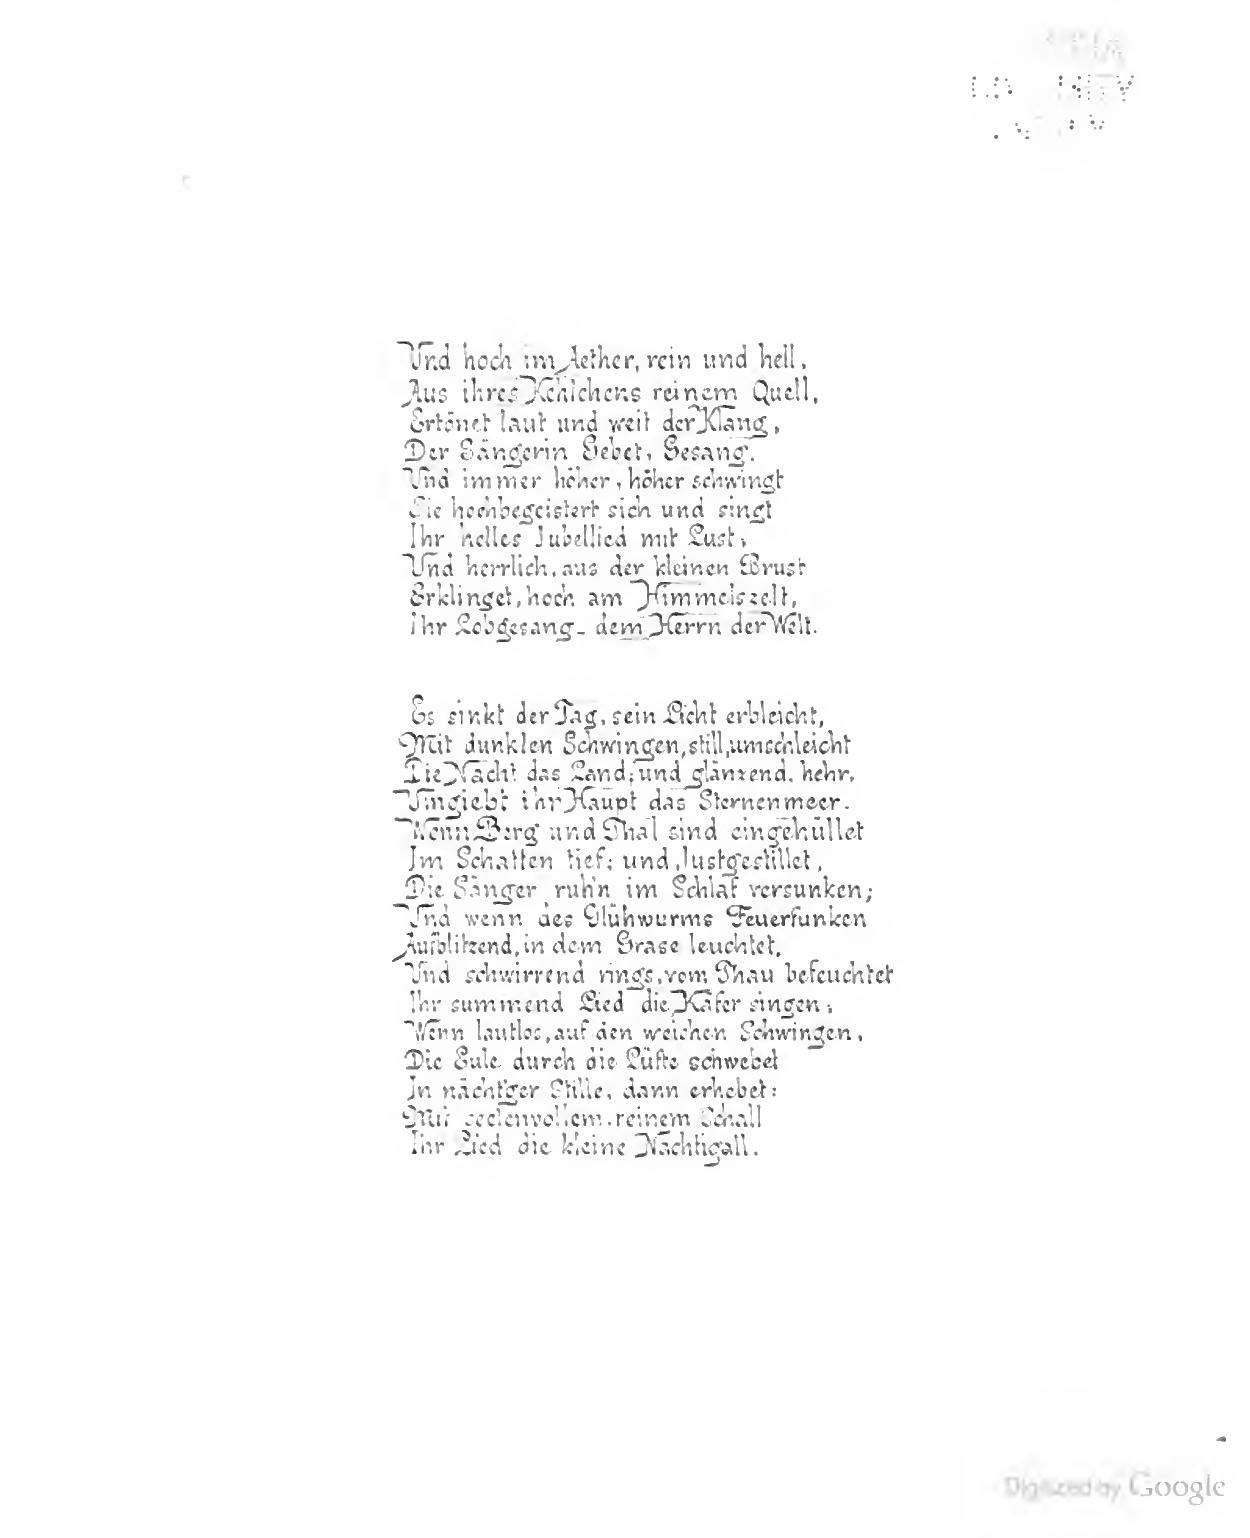 Und hoch im Aether, rein und hell,
Aus ihres Kehlchens reinem Quell,
Ertönet laut und weit der Klang,
Der Sängerin Gebet, Gesang.
Und immer höher, höher schwingt
Sie hochbegeistert sich und singt
Ihr helles Jubellied mit Lust;
Und herrlich, aus der kleinen Brust
Erklinget, hoch am Himmelszelt,
Ihr Lobgesang – dem Herrn der Welt.
Es sinkt der Tag, sein Licht erbleicht,
Mit dunklen Schwingen, still, umschleicht
Die Nacht das Land; und glänzend, hehr,
Umgiebt ihr Haupt das Sternenmeer.
Wenn Berg und Thal sind eingehüllet
Im Schatten tief; und, lustgestillet,
Die Sänger ruh'n im Schlaf versunken;
Und wenn des Glühwurms Feuerfunken
Aufblitzend, in dem Grase leuchtet,
Und schwirrend rings, vom Thau befeuchtet
Ihr summend Lied die Käfer singen;
Wenn lautlos, auf den weichen Schwingen,
Die Eule durch die Lüfte schwebet
In nächt'ger Stille, dann erhebet:
Mit seelenvollem, reinem Schall
Ihr Lied die kleine Nachtigall.
Digitized by Google